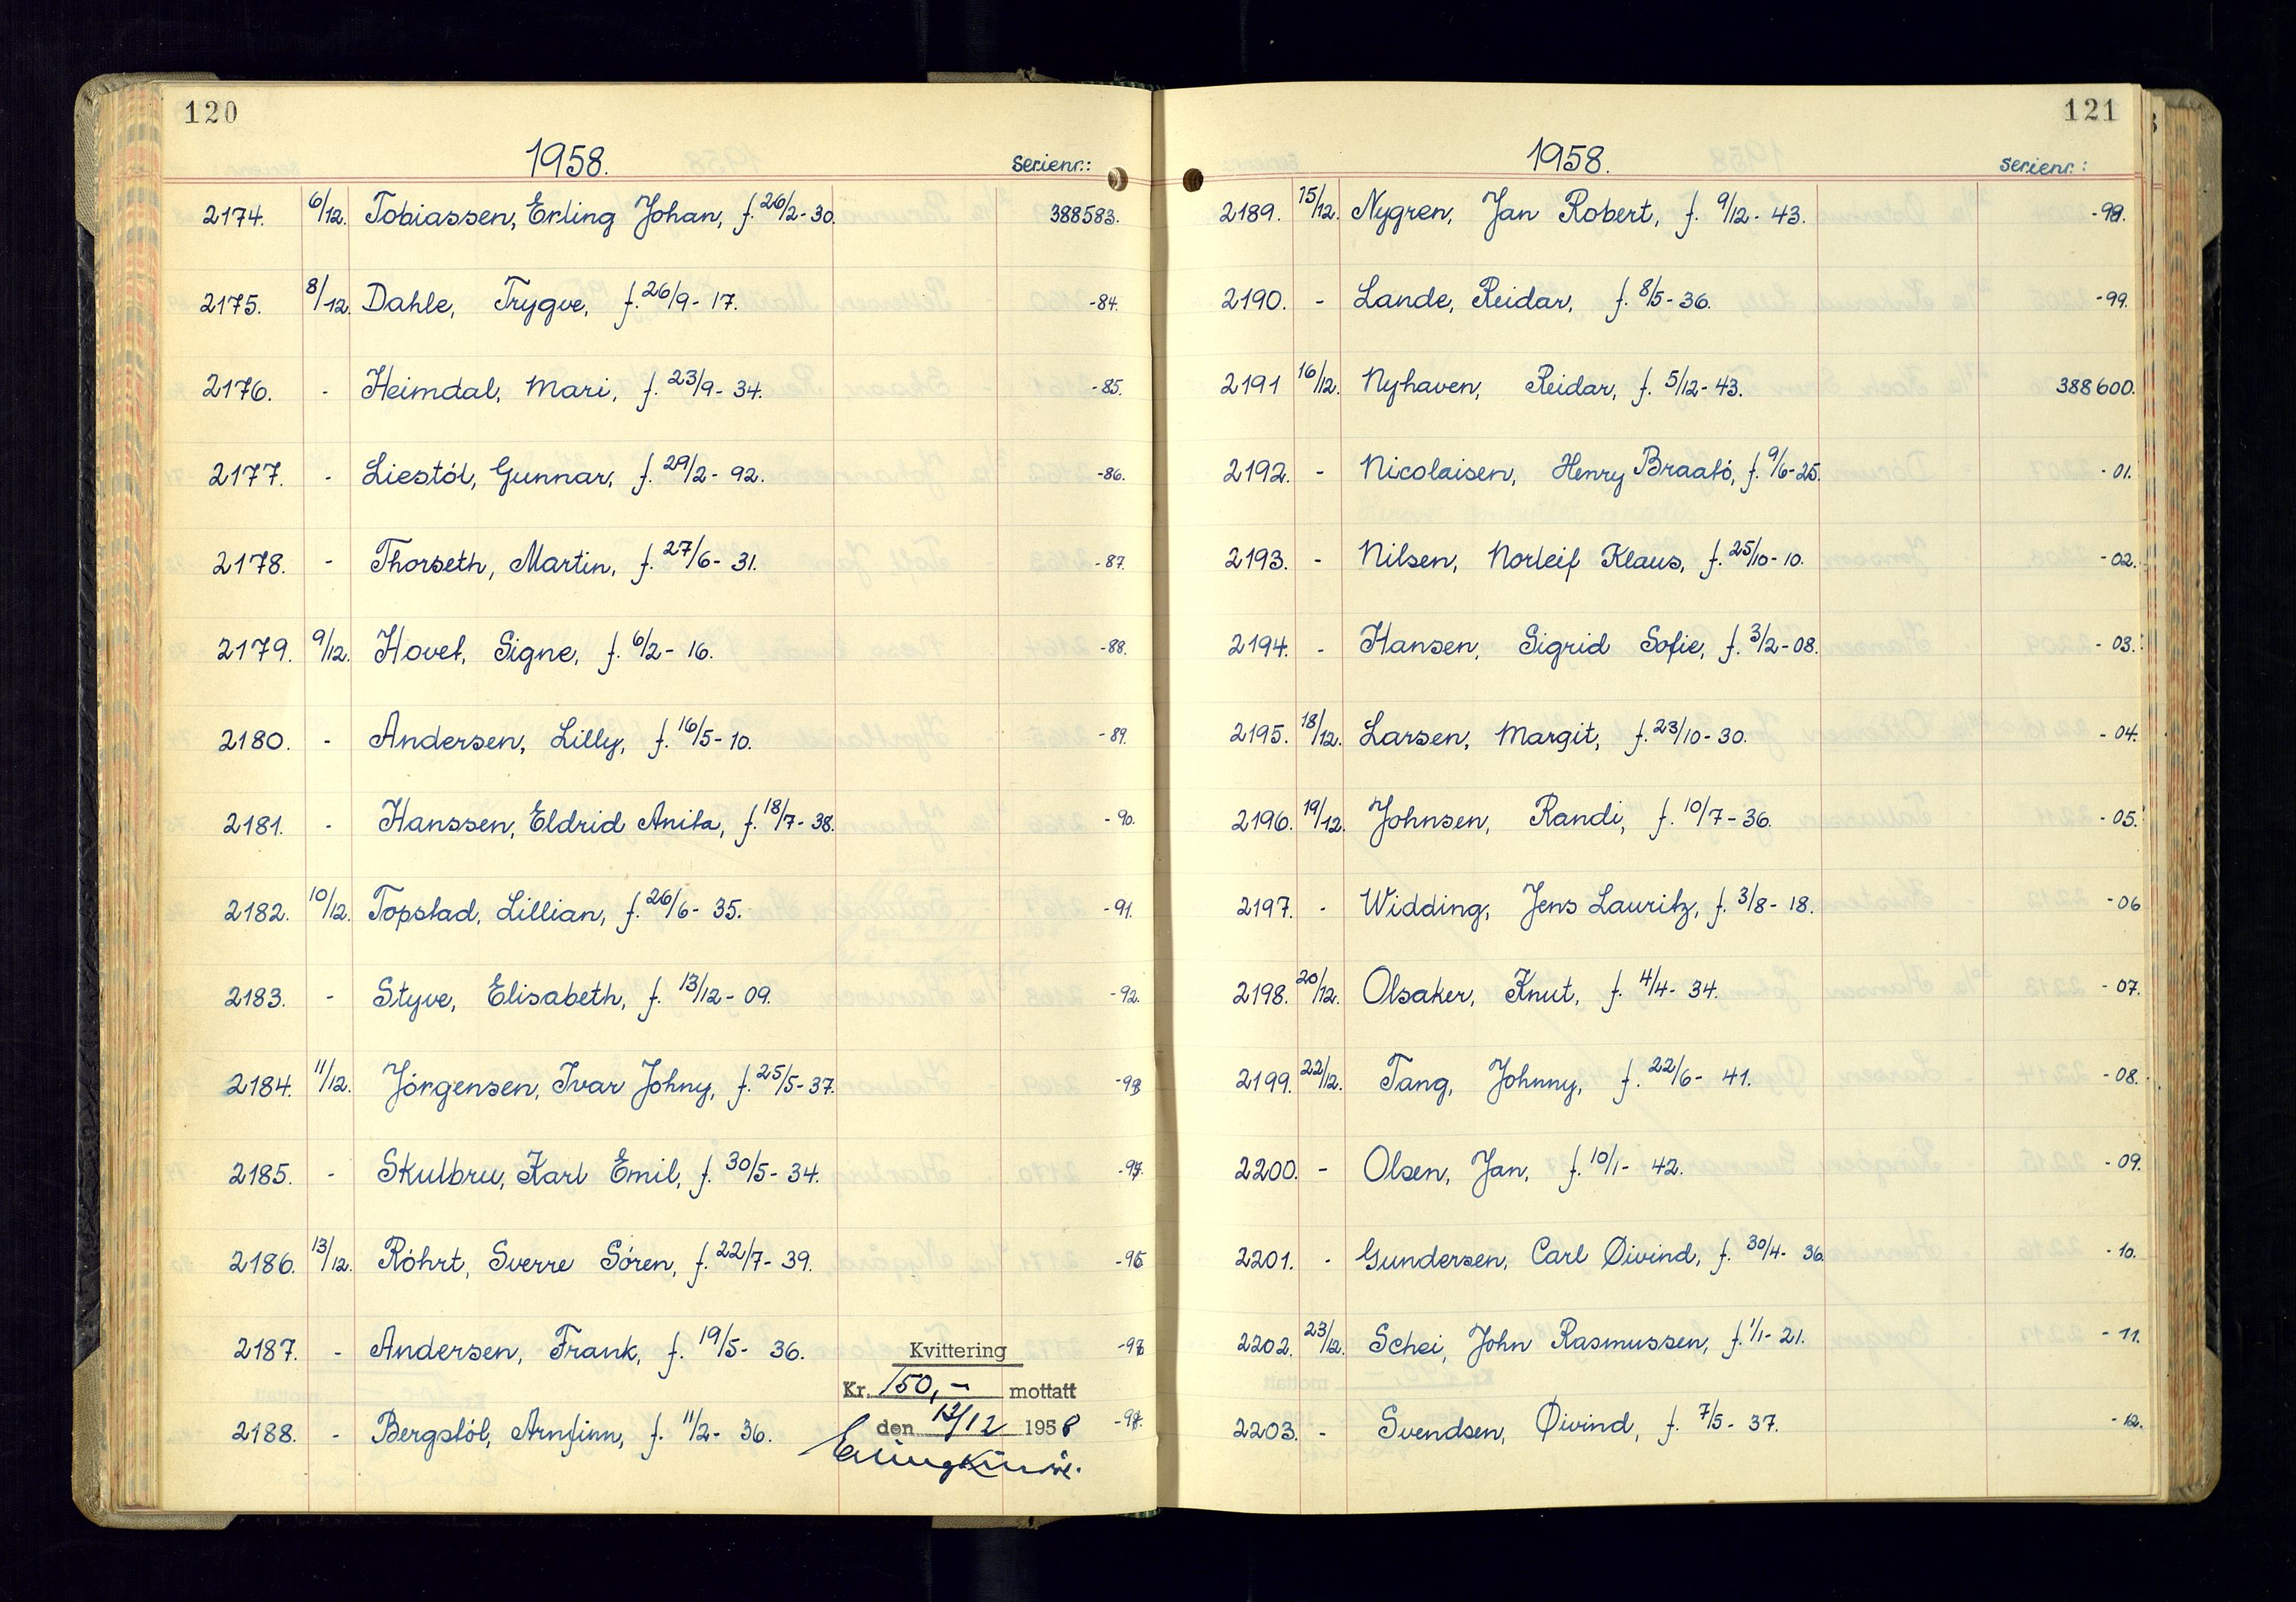 120
1958.
serienr.:
2174. 6/12. Tobiassen, Erling Johan, f. 26/2-30. 388583.
2175. 8/12. Dahle, Trygve, f. 26/9-17. -84.
2176. - Heimdal, Mari, f. 23/9-34. -85.
2177. - Liestöl, Gunnar, f. 29/2-92. -86.
2178. - Thorseth, Martin, f. 27/6-31. -87.
2179. 9/12. Hovet, Signe, f. 6/2-16. -88.
2180. - Andersen, Lilly, f. 16/5-10. -89.
2181. - Hanssen, Eldrid Anita, f. 18/7-38. -90.
2182. 10/12. Topstad, Lillian, f. 26/6-35. -91.
2183. - Styve, Elisabeth, f. 13/12-09. -92.
2184. 11/12. Jörgensen, Ivar Johny, f. 25/5-37. -93
2185. - Skulbru, Karl Emil, f. 30/5-34. -94.
2186. 13/12. Röhrt, Sverre Sören, f. 22/7-39. -95
2187. - Andersen, Frank, f. 19/5-36. -96
Kvittering
Kr. 150,- mottatt
den 12/12 1958
2188. - Bergstöl, Arnfinn, f. 11/2-36. -97.
121
1958.
serienr.:
2189. 15/12. Nygren, Jan Robert, f. 9/12-43. -98.
2190. - Lande, Reidar, f. 8/5-36. -99.
2191 16/12. Nyhaven, Reidar, f. 5/12-43. 388600.
2192. - Nicolaisen, Henry Braatö, f. 9/6-25. -01.
2193. - Nilsen, Norleif Klaus, f. 25/10-10. -02.
2194. - Hansen, Sigrid Sofie, f. 3/2-08. -03.
2195. 18/12. Larsen, Margit, f. 23/10-30. -04.
2196. 19/12. Johnsen, Randi, f. 10/7-36. -05.
2197. - Widding, Jens Lauritz, f. 3/8-18. -06
2198. 20/12. Olsaker, Knut, f. 4/4-34. -07.
2199. 22/12. Tang, Johnny, f. 22/6-41. -08.
2200. - Olsen, Jan, f. 10/1-42. -09.
2201. - Gundersen, Carl Øivind, f. 30/4-36. -10.
2202. 23/12. Schei, John Rasmussen, f. 1/1-21. -11.
2203. - Svendsen, Øivind, f. 7/5-37. -12.